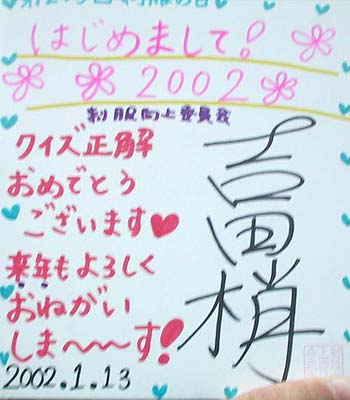 はじめまして!
2002
制服向上委員会
クイズ正解
おめでとう
ございます♥
来年もよろしく
おねがい
しま〜〜〜す!
吉田梢
2002.1.13